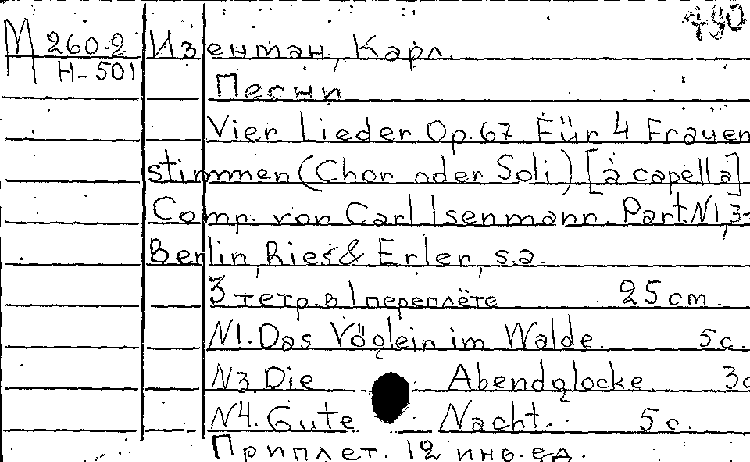 490
М 260-2 Изенман, Карл.
Н-501
Песни
Vier Lieder Op.67 Für 4 Frauen
stimmen (Chor oder Soli) [à capella]
Comp. von Carl Isenmann. Part. N1,3-
Berlin, Ries & Erler, s.a.
3 тетр. в 1 переплёте 25 cm.
N1. Das Vöglein im Walde. 5c.
N3. Die Abendglocke. 3c
N4. Gute Nacht. 5c.
Приплет. 12 инв. ед.